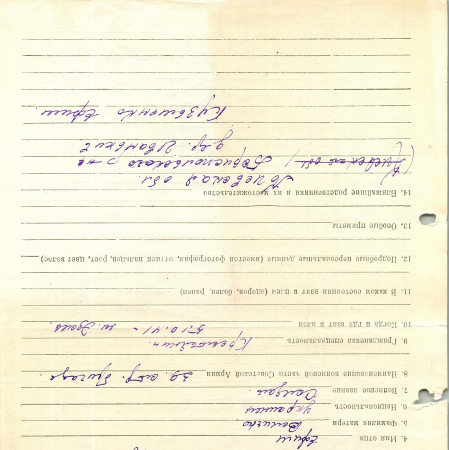 4. Имя отца Ефим
5. Фамилия матери
6. Национальность Украинец
7. Воинское звание
8. Наименование воинской части Советской Армии 39 Бригада
9. Гражданская специальность
10. Когда и где взят в плен 5.10.41
11. В каком состоянии взят в плен (здоров, болен, ранен)
12. Подробные персональные данные (имеется фотография, оттиск пальцев, рост, цвет волос)
13. Особые приметы
14. Ближайшие родственники и их местожительство
Киевская обл
Бориспольского р-на
дер. Иванков
Кузьменко Ефим.